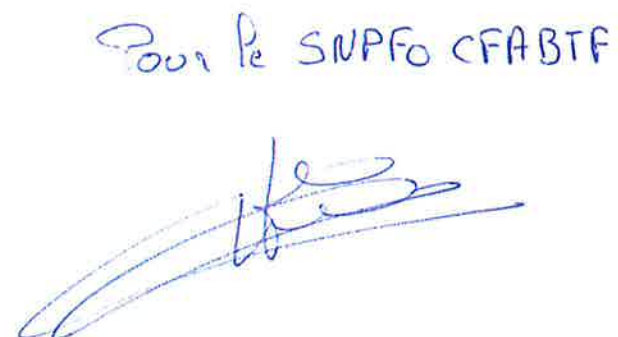 Pour le SNPFO CFABTF